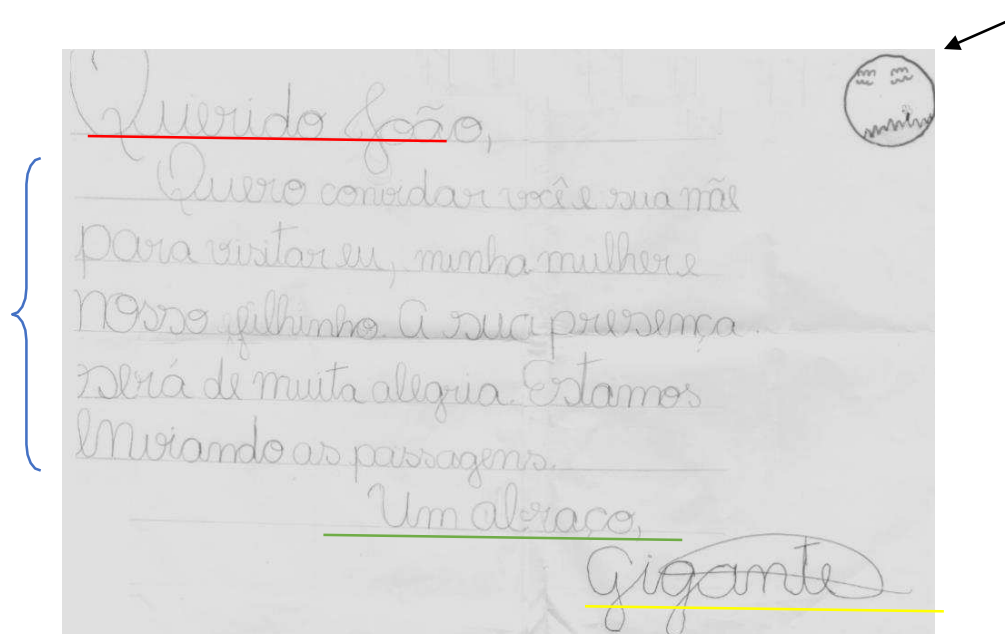 Querido João,
Quero convidar você e sua mãe
para visitar eu, minha mulher e
nosso filhinho. A sua presença
será de muita alegria. Estamos
enviando as passagens.
Um abraço,
Gigante